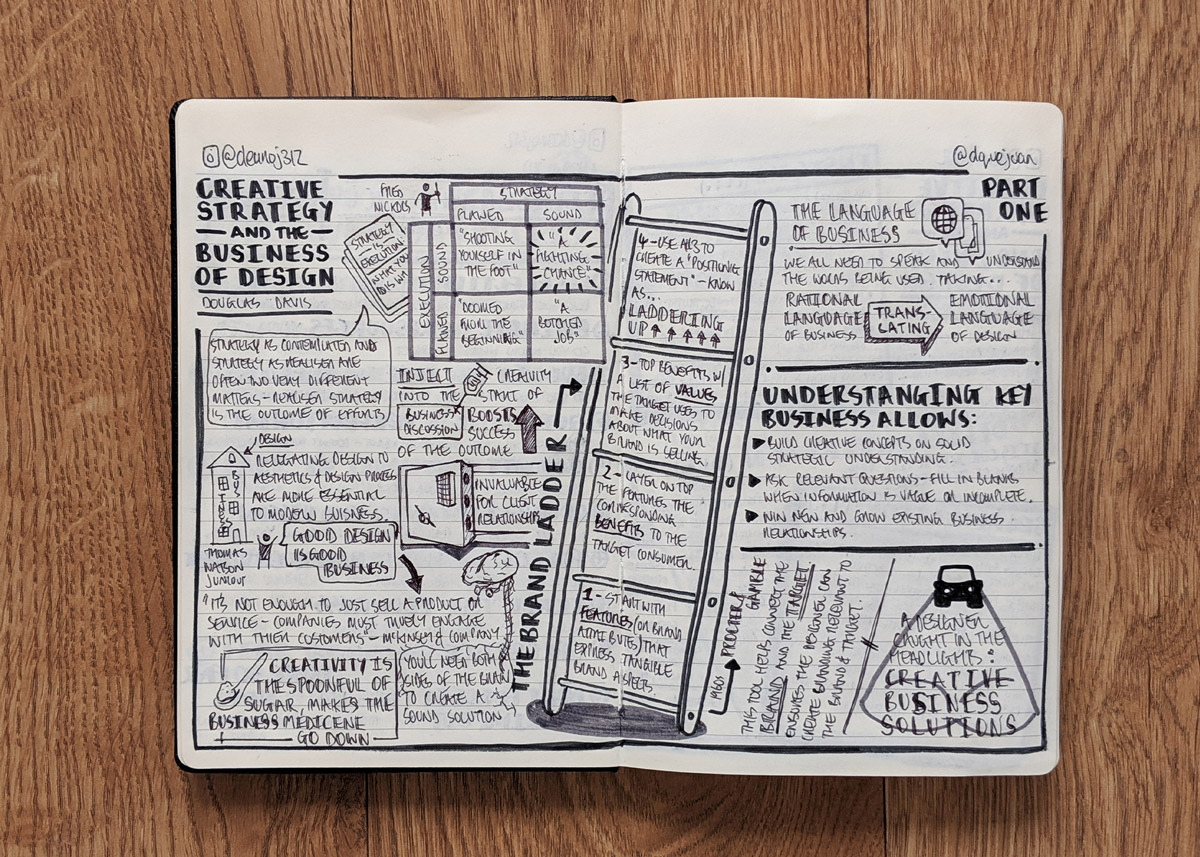 @deanoj312
CREATIVE
STRATEGY
AND THE
BUSINESS
OF DESIGN
DOUGLAS DAVIS
FRED
NICKOLS
STRATEGY
IS
EXECUTION
WHAT YOU
STRATEGY
FLAWED
SOUND
EXECUTION
SOUND
"SHOOTING
YOURSELF IN
THE FOOT"
"A
FIGHTING
CHANCE"
FLAWED
"DOOMED
FROM THE
BEGINNING"
"A
BOTCHED
JOB"
STRATEGY AS CONTEMPLATED AND
STRATEGY AS REALISED ARE
OFTEN TWO VERY DIFFERENT
MATTERS - REALISED STRATEGY
IS THE OUTCOME OF EFFORTS
INJECT CREATIVITY
INTO THE START OF
BUSINESS
DISCUSSION
BOOSTS
SUCCESS
OF THE OUTCOME
DESIGN
BUSINESS
RELEGATING DESIGN TO
AESTHETICS & DESIGN PROCESS
ARE MORE ESSENTIAL
TO MODERN BUISNESS.
INVALUABLE
FOR CLIENT
RELATIONSHIPS
THOMAS
WATSON
JUNIOUR
GOOD DESIGN
IS GOOD
BUSINESS
"IT'S NOT ENOUGH TO JUST SELL A PRODUCT OR
SERVICE - COMPANIES MUST TRUELY ENGAGE
WITH THIER CUSTOMERS" - McKINSEY & COMPANY
CREATIVITY IS
THE SPOONFUL OF
SUGAR, MAKES THE
BUSINESS MEDICENE
GO DOWN
YOU'LL NEED BOTH
SIDES OF THE BRAIN
TO CREATE A
SOUND SOLUTION
THE BRAND LADDER
4 - USE ALL 3 TO
CREATE A "POSITIONING
STATEMENT" - KNOW
AS...
LADDERING
UP
3 - TOP BENEFITS W/
A LIST OF VALUES
THE TARGET USES TO
MAKE DECISIONS
ABOUT WHAT YOUR
BRAND IS SELLING.
2 - LAYER ON TOP
THE FEATURES THE
CORRESPONDING
BENEFITS TO THE
TARGET CONSUMER.
1 - START WITH
FEATURES (OR BRAND
ATTRIBUTES) THAT
EXPRESS TANGIBLE
BRAND ASPECTS.
@dquejuan
PART
ONE
THE LANGUAGE
OF BUSINESS
WE ALL NEED TO SPEAK AND UNDERSTAND
THE WORDS BEING USED. TAKING...
RATIONAL
LANGUAGE
OF BUSINESS
TRANS-
LATING
EMOTIONAL
LANGUAGE
OF DESIGN
UNDERSTANGING KEY
BUSINESS ALLOWS:
BUILD CREATIVE CONCEPTS ON SOLID
STRATEGIC UNDERSTANDING.
ASK RELEVANT QUESTIONS - FILL IN BLANKS
WHEN INFORMATION IS VAGUE OR INCOMPLETE.
WIN NEW AND GROW EXISTING BUSINESS
RELATIONSHIPS.
1960s PROCTER & GAMBLE
THIS TOOL HELPS CONNECT THE
BRAND AND THE TARGET.
ENSURES THE DESIGNER CAN
CREATE BRANDING RELEVANT TO
THE BRAND & TARGET.
A DESIGNER
CAUGHT IN THE
HEADLIGHTS:
CREATIVE
BUSINESS
SOLUTIONS